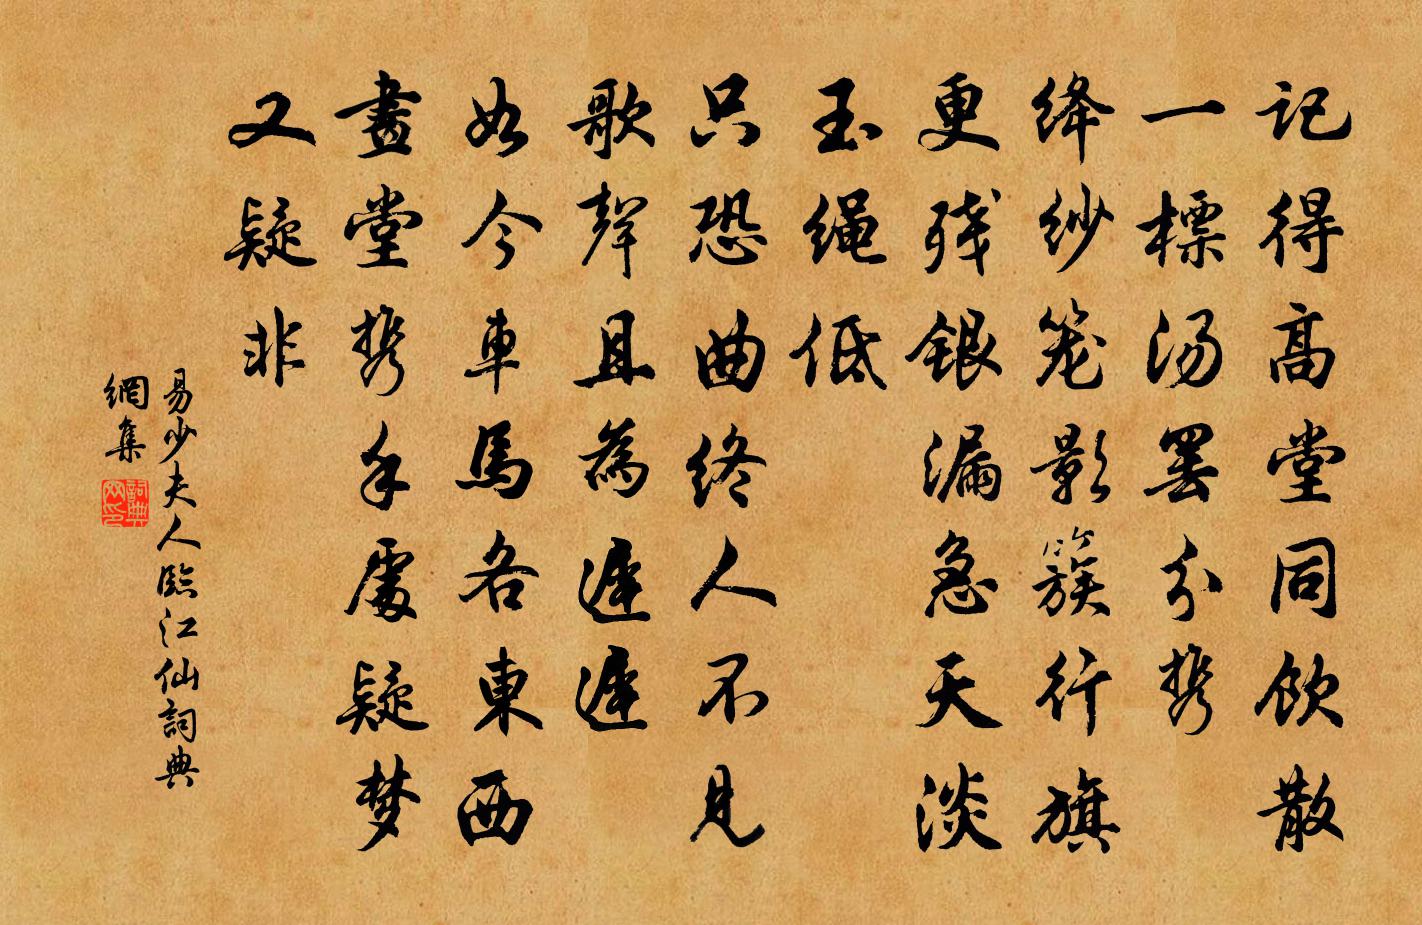 记得高堂同飲散
一標汤罢分携
绛纱笼影簇行旗
更残銀漏急天淡
玉绳低
只恐曲终人不見
歌聲且為遲遲
如今車馬各東西
畫堂携手處疑梦
又疑非
易少夫人臨江仙詞典
網集
詞典網印